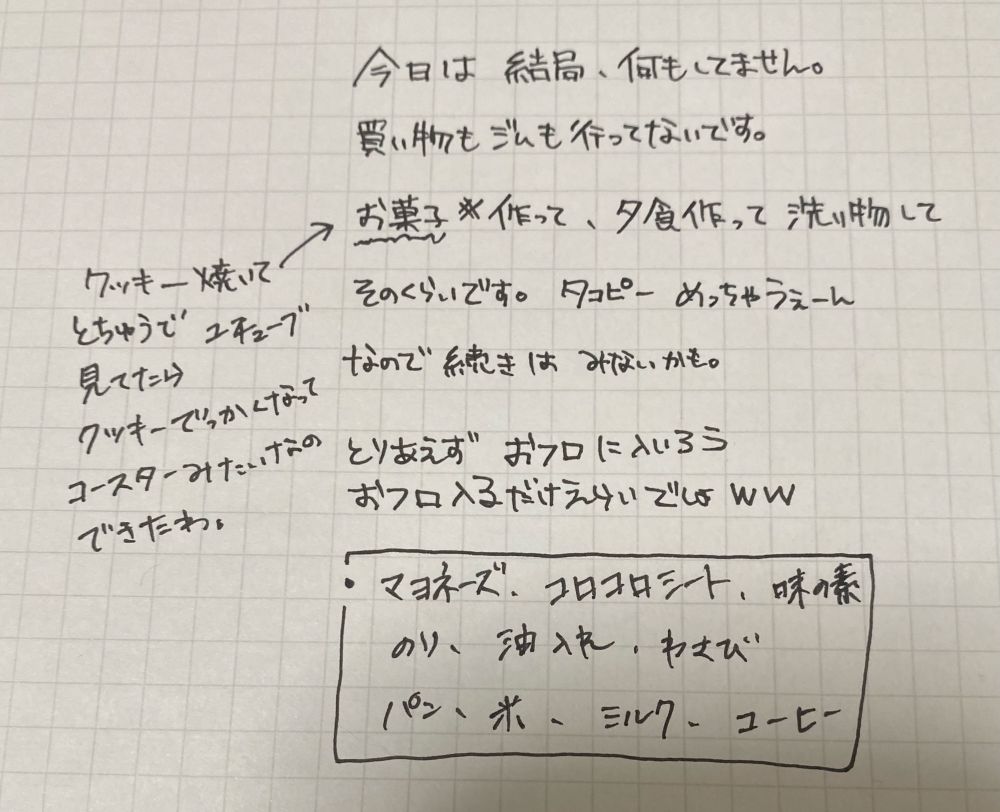 今日は 結局、何もしてません。
買い物も ジムも 行ってないです。
お菓子※作って、夕食作って 洗い物して
そのくらいです。 タコピー めっちゃうぇーん
なので 続きは みないかも。
とりあえず おフロに入いろう
おフロ入るだけえらいでしょ ww
クッキー焼いて
とちゅうで ユチューブ
見てたら
クッキーでっかくなって
コースターみたいなの
できたわ。
・マヨネーズ、コロコロシート、味の素
のり、油入れ、わさび
パン、米、ミルク、コーヒー